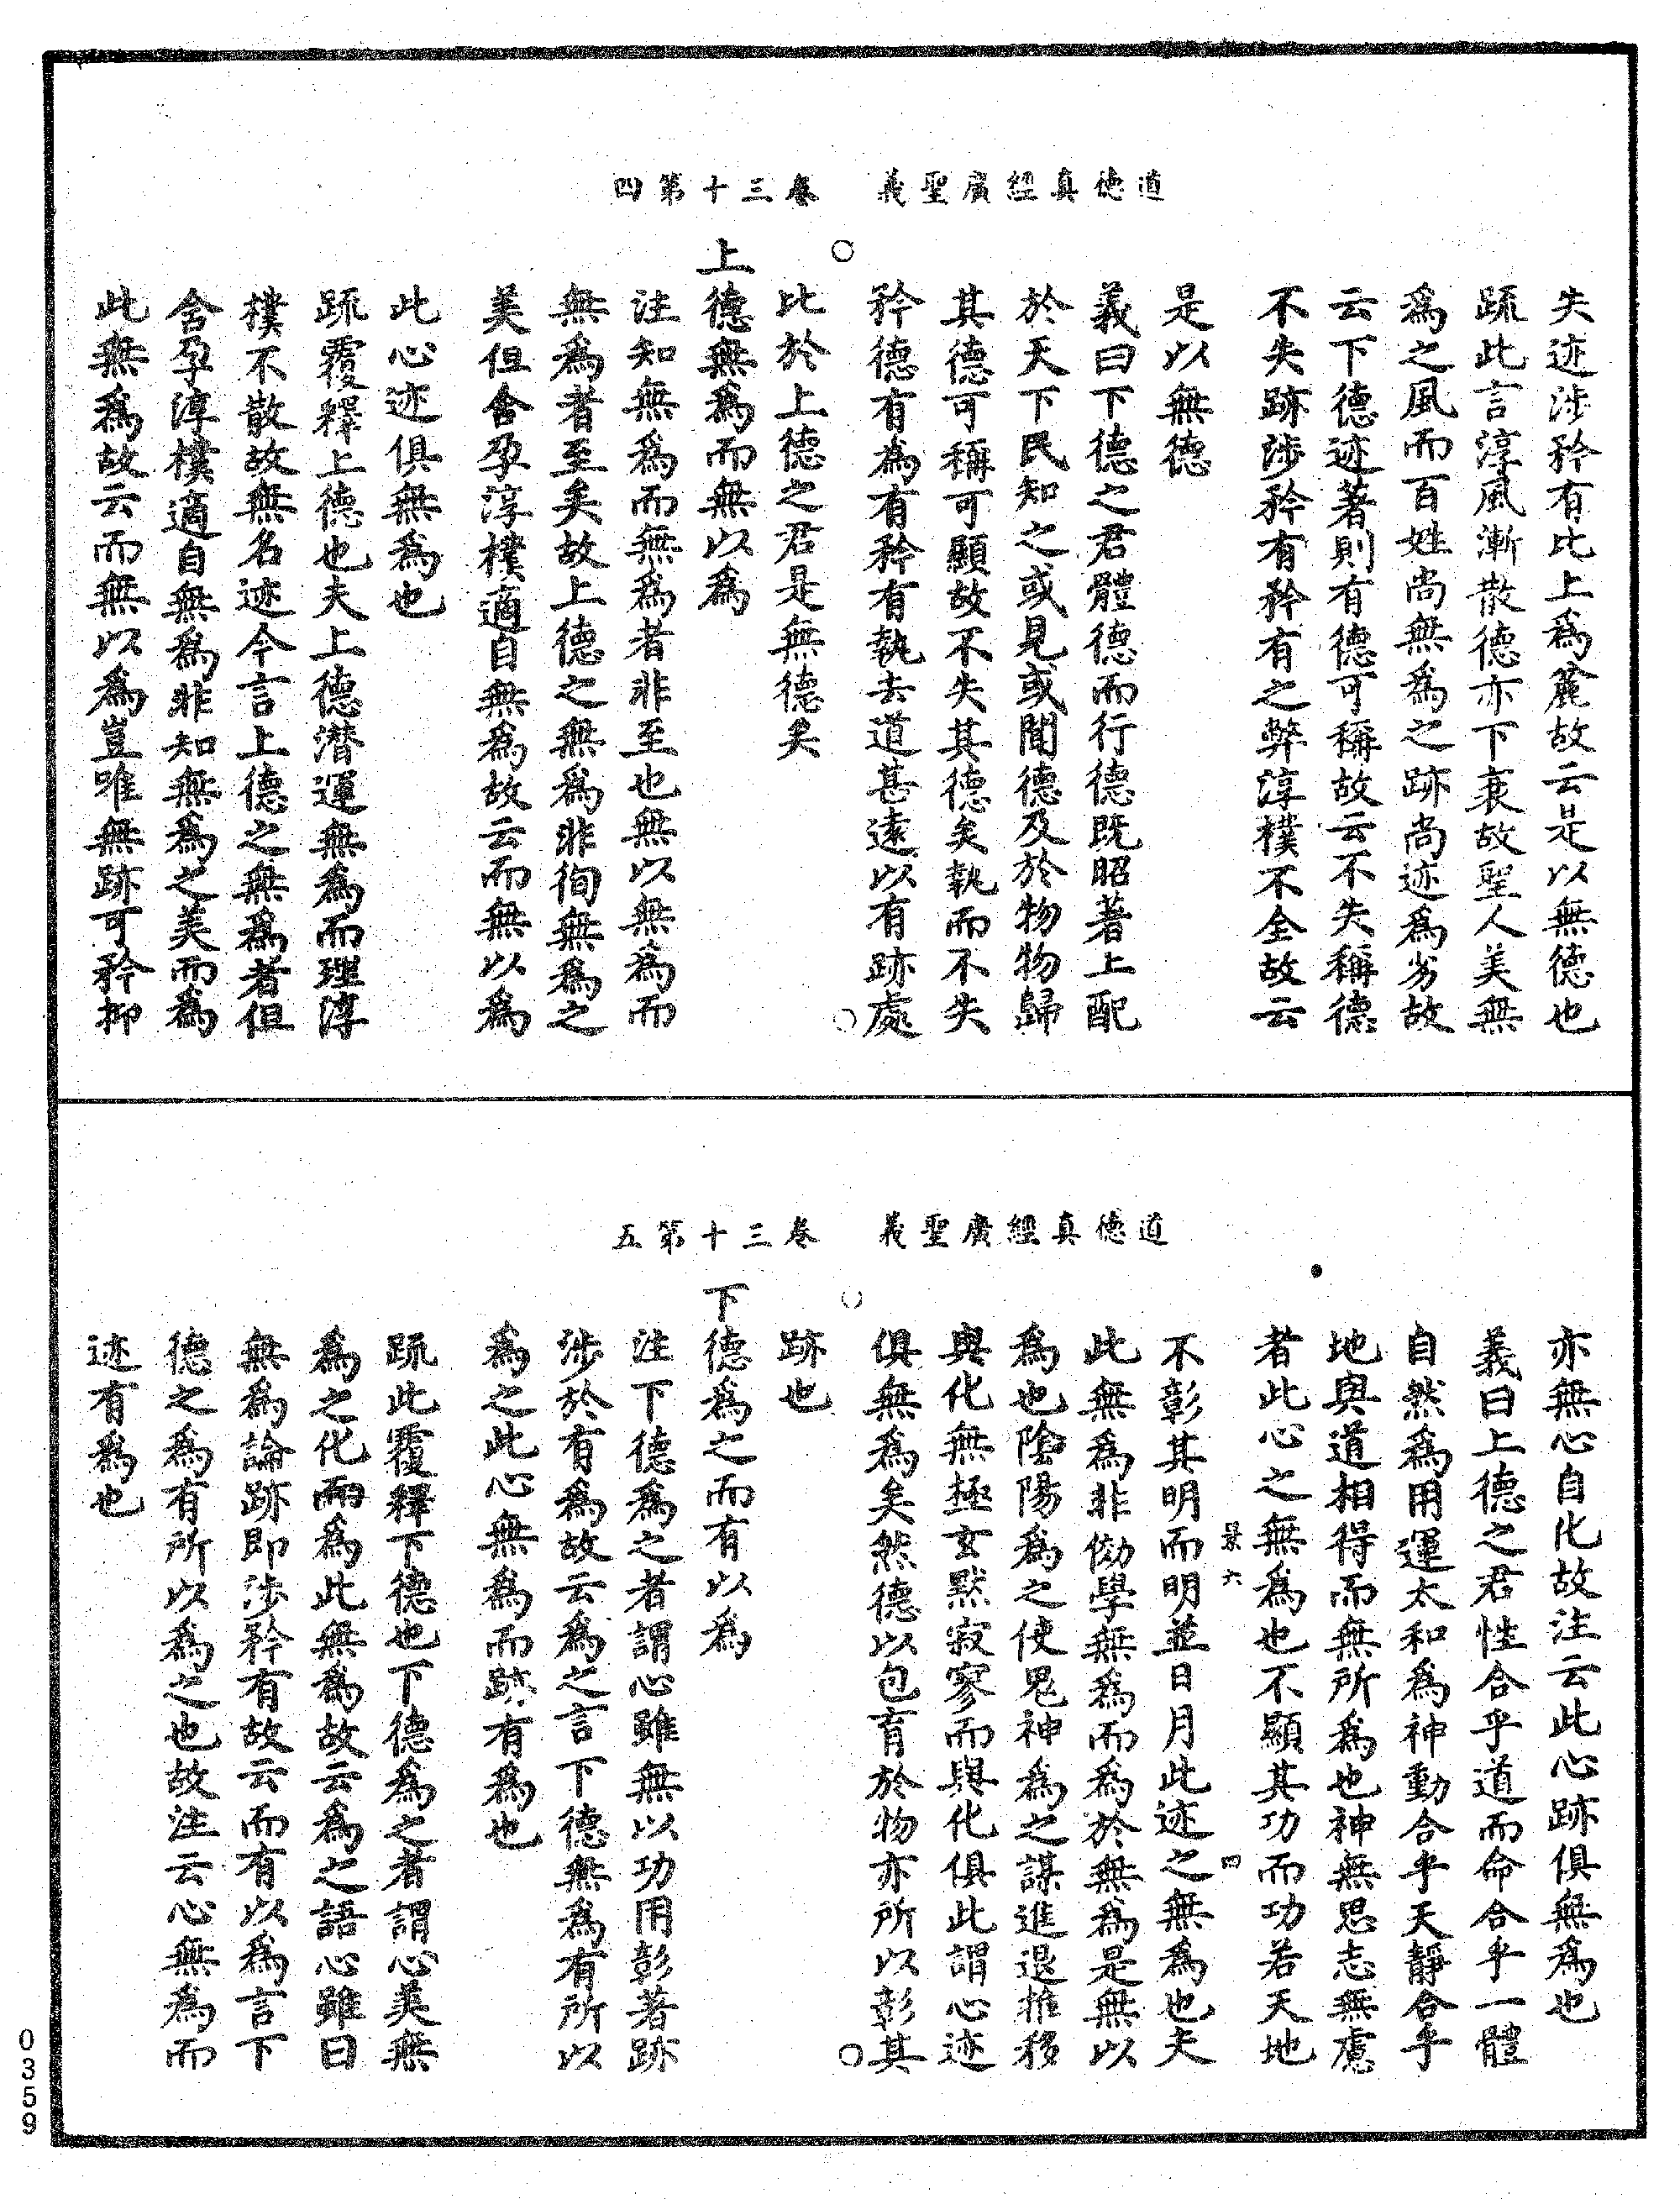 道德真經廣聖義　卷三十第四
失迹涉矜有比上爲麄故云是以無德也
䟽此言淳風漸散德亦下衰故聖人美無
爲之風而百姓尚無爲之跡尚迹爲劣故
云下德迹著則有德可稱故云不失稱德
不失跡涉矜有矜有之弊淳樸不全故云
是以無德
義曰下德之君體德而行德既昭著上配
於天下民知之或見或聞德及於物物歸
其德可稱可顯故不失其德矣執而不失
矜德有為有矜有執去道甚遠以有跡處
比於上德之君是無德矣
上德無爲而無以爲
注知無爲而無爲者非至也無以無為而
無爲者至矣故上德之無爲非徇無爲之
美但含孕淳樸適自無爲故云而無以爲
此心迹俱無爲也
䟽覆釋上德也夫上德潛運無爲而理淳
樸不散故無名迹今言上德之無爲者但
含孕淳樸適自無爲非知無爲之美而爲
此無爲故云而無以爲豈唯無跡可矜抑
道德真經廣聖義　卷三十第五
亦無心自化故注云此心跡俱無爲也
義曰上德之君性合乎道而命合乎一體
自然爲用運太和爲神動合乎天靜合乎
地與道相得而無所爲也神無思志無慮
者此心之無爲也不顯其功而功若天地
景六　四
不彰其明而明並日月此迹之無爲也夫
此無爲非俲學無爲而爲於無爲是無以
爲也陰陽爲之使鬼神爲之謀進退推移
與化無極玄默寂寥而與化俱此謂心迹
俱無爲矣然德以包育於物亦所以彰其
跡也
下德爲之而有以為
注下德爲之者謂心雖無以功用彰著跡
涉於有爲故云爲之言下德無爲有所以
爲之此心無爲而跡有爲也
䟽此覆釋下德也下德爲之者謂心美無
爲之化而爲此無爲故云爲之語心雖曰
無爲論跡即涉矜有故云而有以爲言下
德之爲有所以爲之也故注云心無爲而
迹有爲也
0359